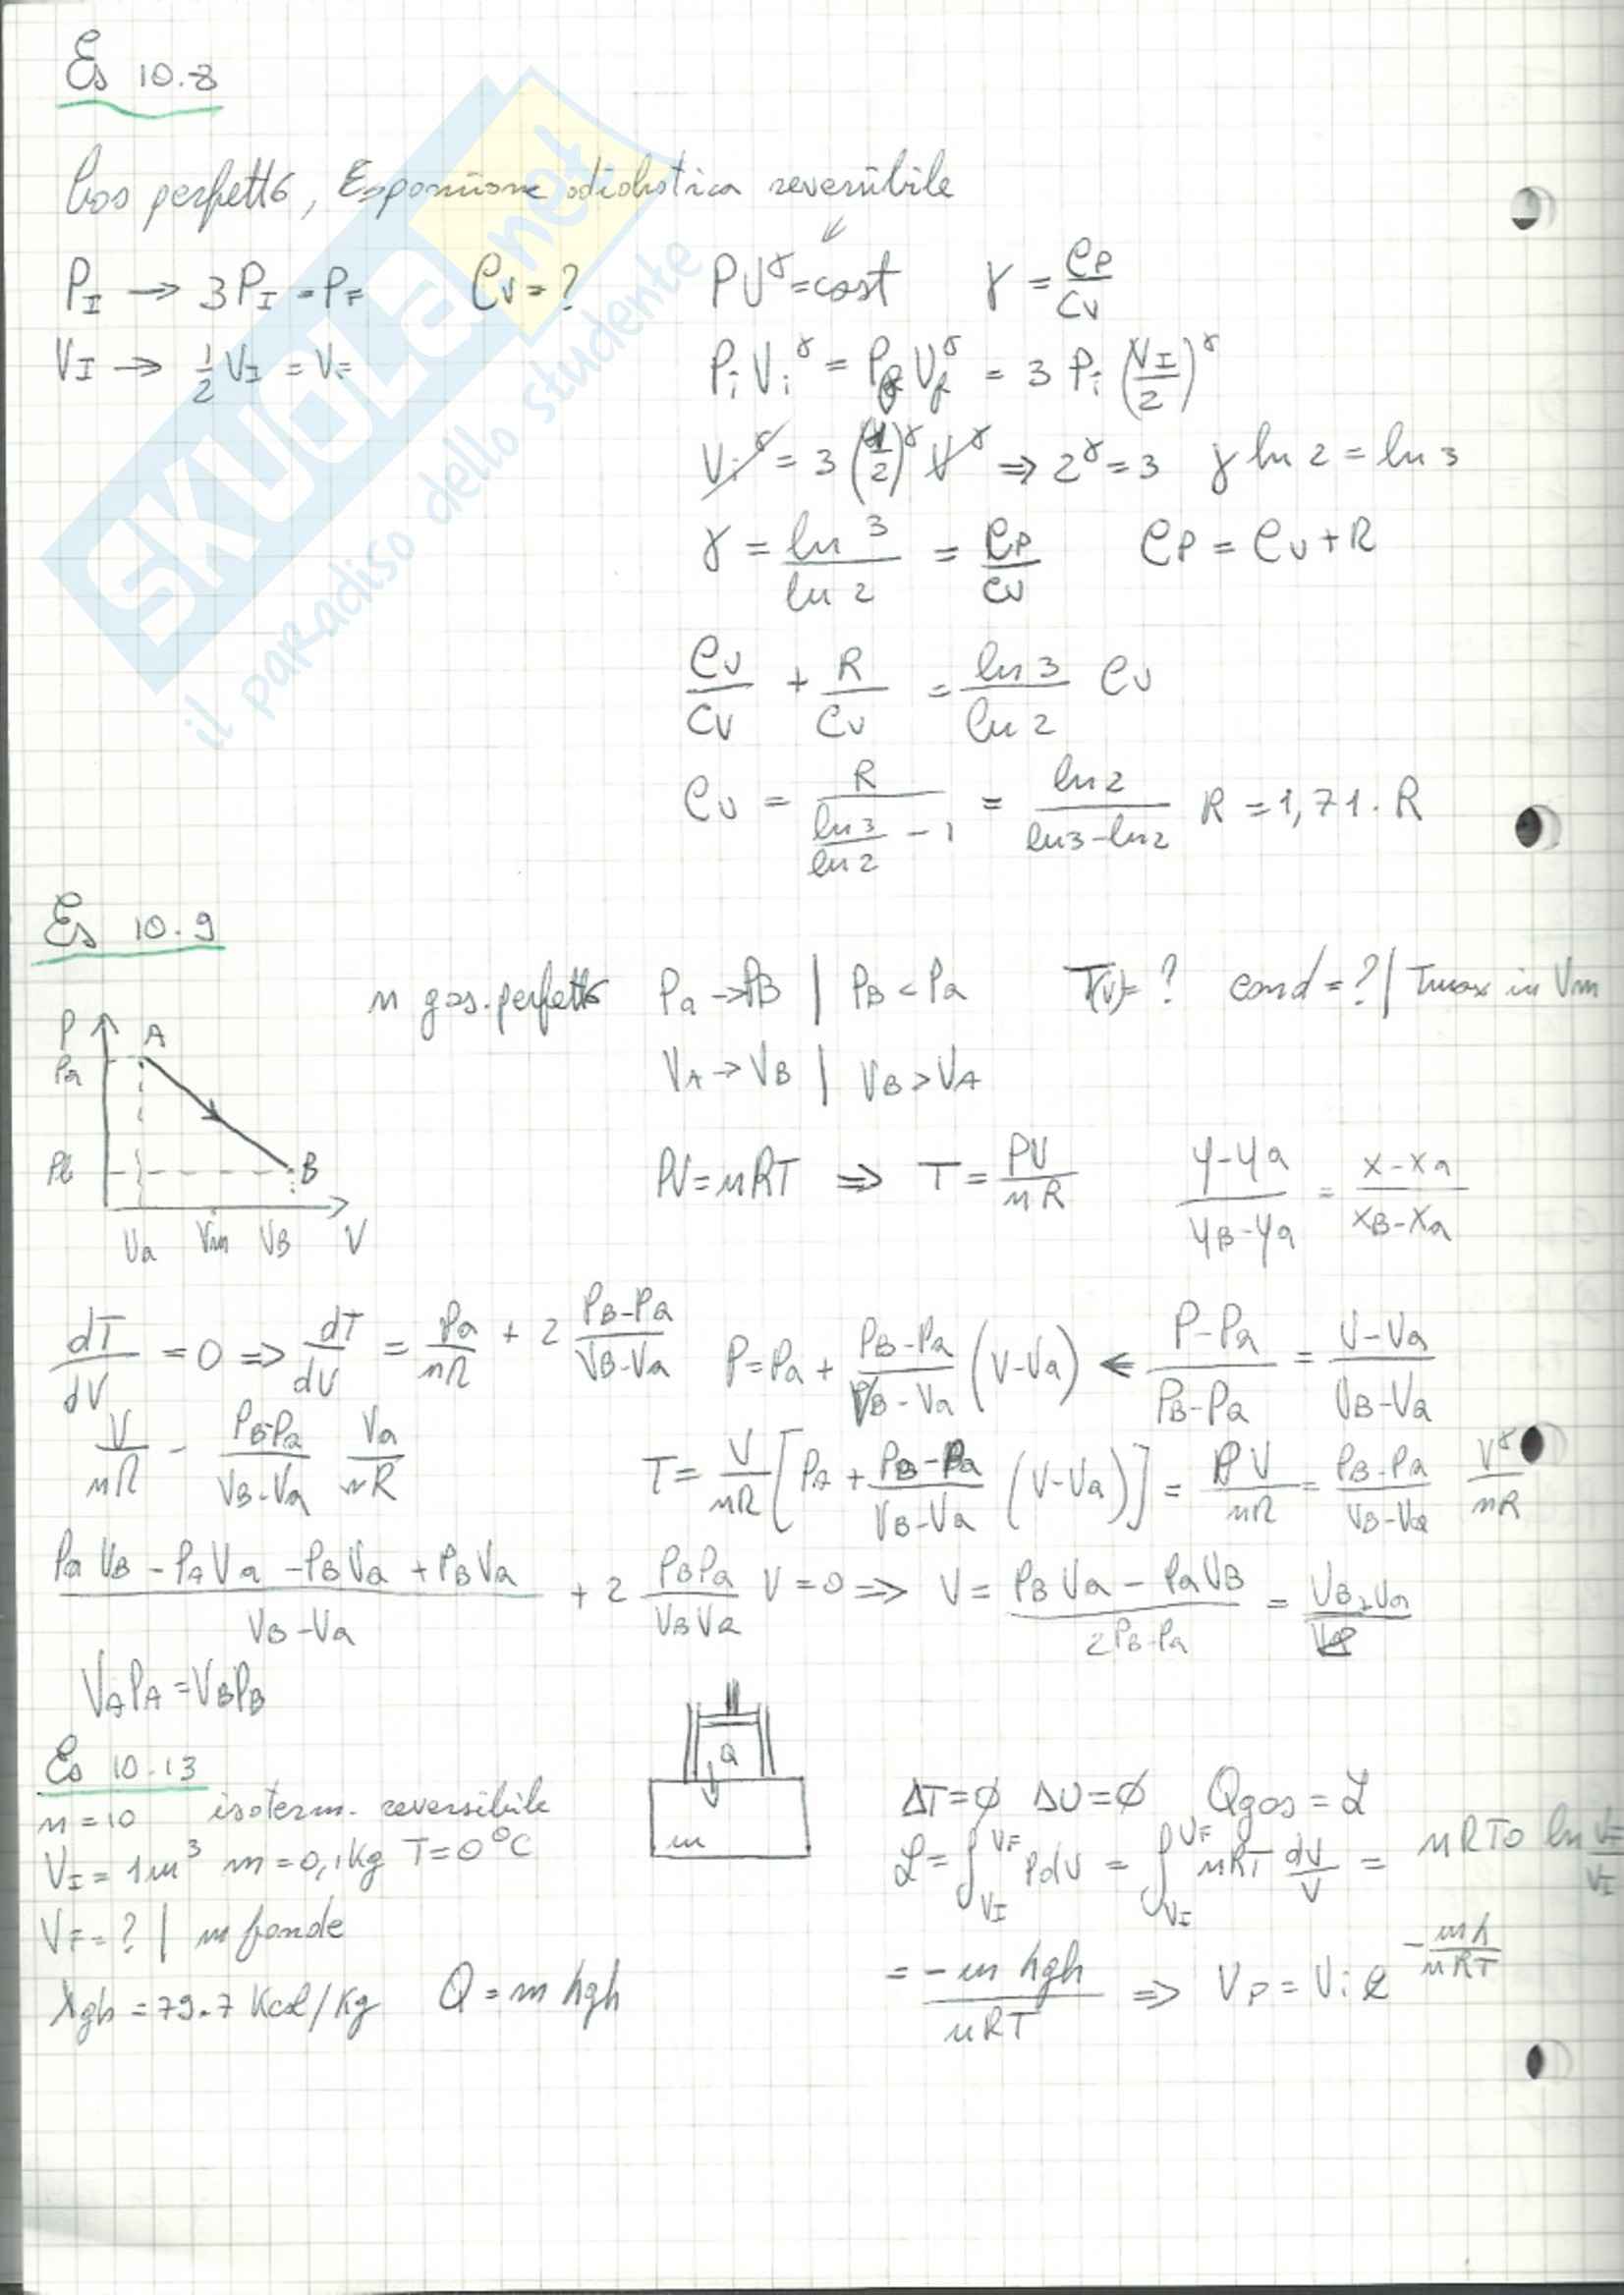 Es 10.8
Gas perfetto, Espansione adiabatica reversibile
P_I → 3P_I = P_F   C_V = ?   PV^γ = cost   γ = C_P/C_V
V_I → 1/2 V_I = V_F   P_i V_i^γ = P_f V_f^γ = 3 P_i (V_I/2)^γ
V_i^γ = 3 (1/2)^γ V^γ ⇒ 2^γ = 3   γ ln 2 = ln 3
γ = ln 3/ln 2 = C_P/C_V   C_P = C_V + R
C_V/C_V + R/C_V = ln 3/ln 2 C_V
C_V = R/(ln 3/ln 2 - 1) = ln 2/(ln 3 - ln 2) R = 1,71 · R
Es 10.9
n gas perfetto   P_a → P_B | P_B < P_a   T(V) = ?   cond = ? | Tmax in V_m
V_A → V_B | V_B > V_A
P   A
P_a
P_b   B
V_a   V_m   V_B   V
PV = nRT ⇒ T = PV/nR   (y - y_a)/(y_B - y_a) = (x - x_a)/(x_B - x_a)
dT/dV = 0 ⇒ dT/dV = P_a/nR + 2 (P_B - P_a)/(V_B - V_a)   P = P_a + (P_B - P_a)/(V_B - V_a) (V - V_a) ⇐ (P - P_a)/(P_B - P_a) = (V - V_a)/(V_B - V_a)
V/nR - (P_B - P_a)/(V_B - V_a) V_a/nR   T = V/nR [P_A + (P_B - P_a)/(V_B - V_a) (V - V_a)] = PV/nR = (P_B - P_a)/(V_B - V_a) V^γ/nR
(P_a V_B - P_A V_a - P_B V_a + P_B V_a)/(V_B - V_a) + 2 P_B P_a/(V_B V_a) V = 0 ⇒ V = (P_B V_a - P_a V_B)/(2 P_B - P_a) = (V_B + V_a)/2
V_A P_A = V_B P_B
Es 10.13
n = 10   isoterm. reversibile
V_I = 1 m³   m = 0,1 kg   T = 0°C
V_F = ? | m fonde
λgh = 79.7 Kcal/kg   Q = m λgh
Q
m
ΔT = ∅   ΔU = ∅   Qgas = L
L = ∫_{V_I}^{V_F} P dV = ∫_{V_I}^{V_F} nRT dV/V = nRT0 ln V_F/V_I
= -m λgh/nRT ⇒ V_F = V_i e^{-mλ/nRT}
SKUOLA.net
il paradiso dello studente